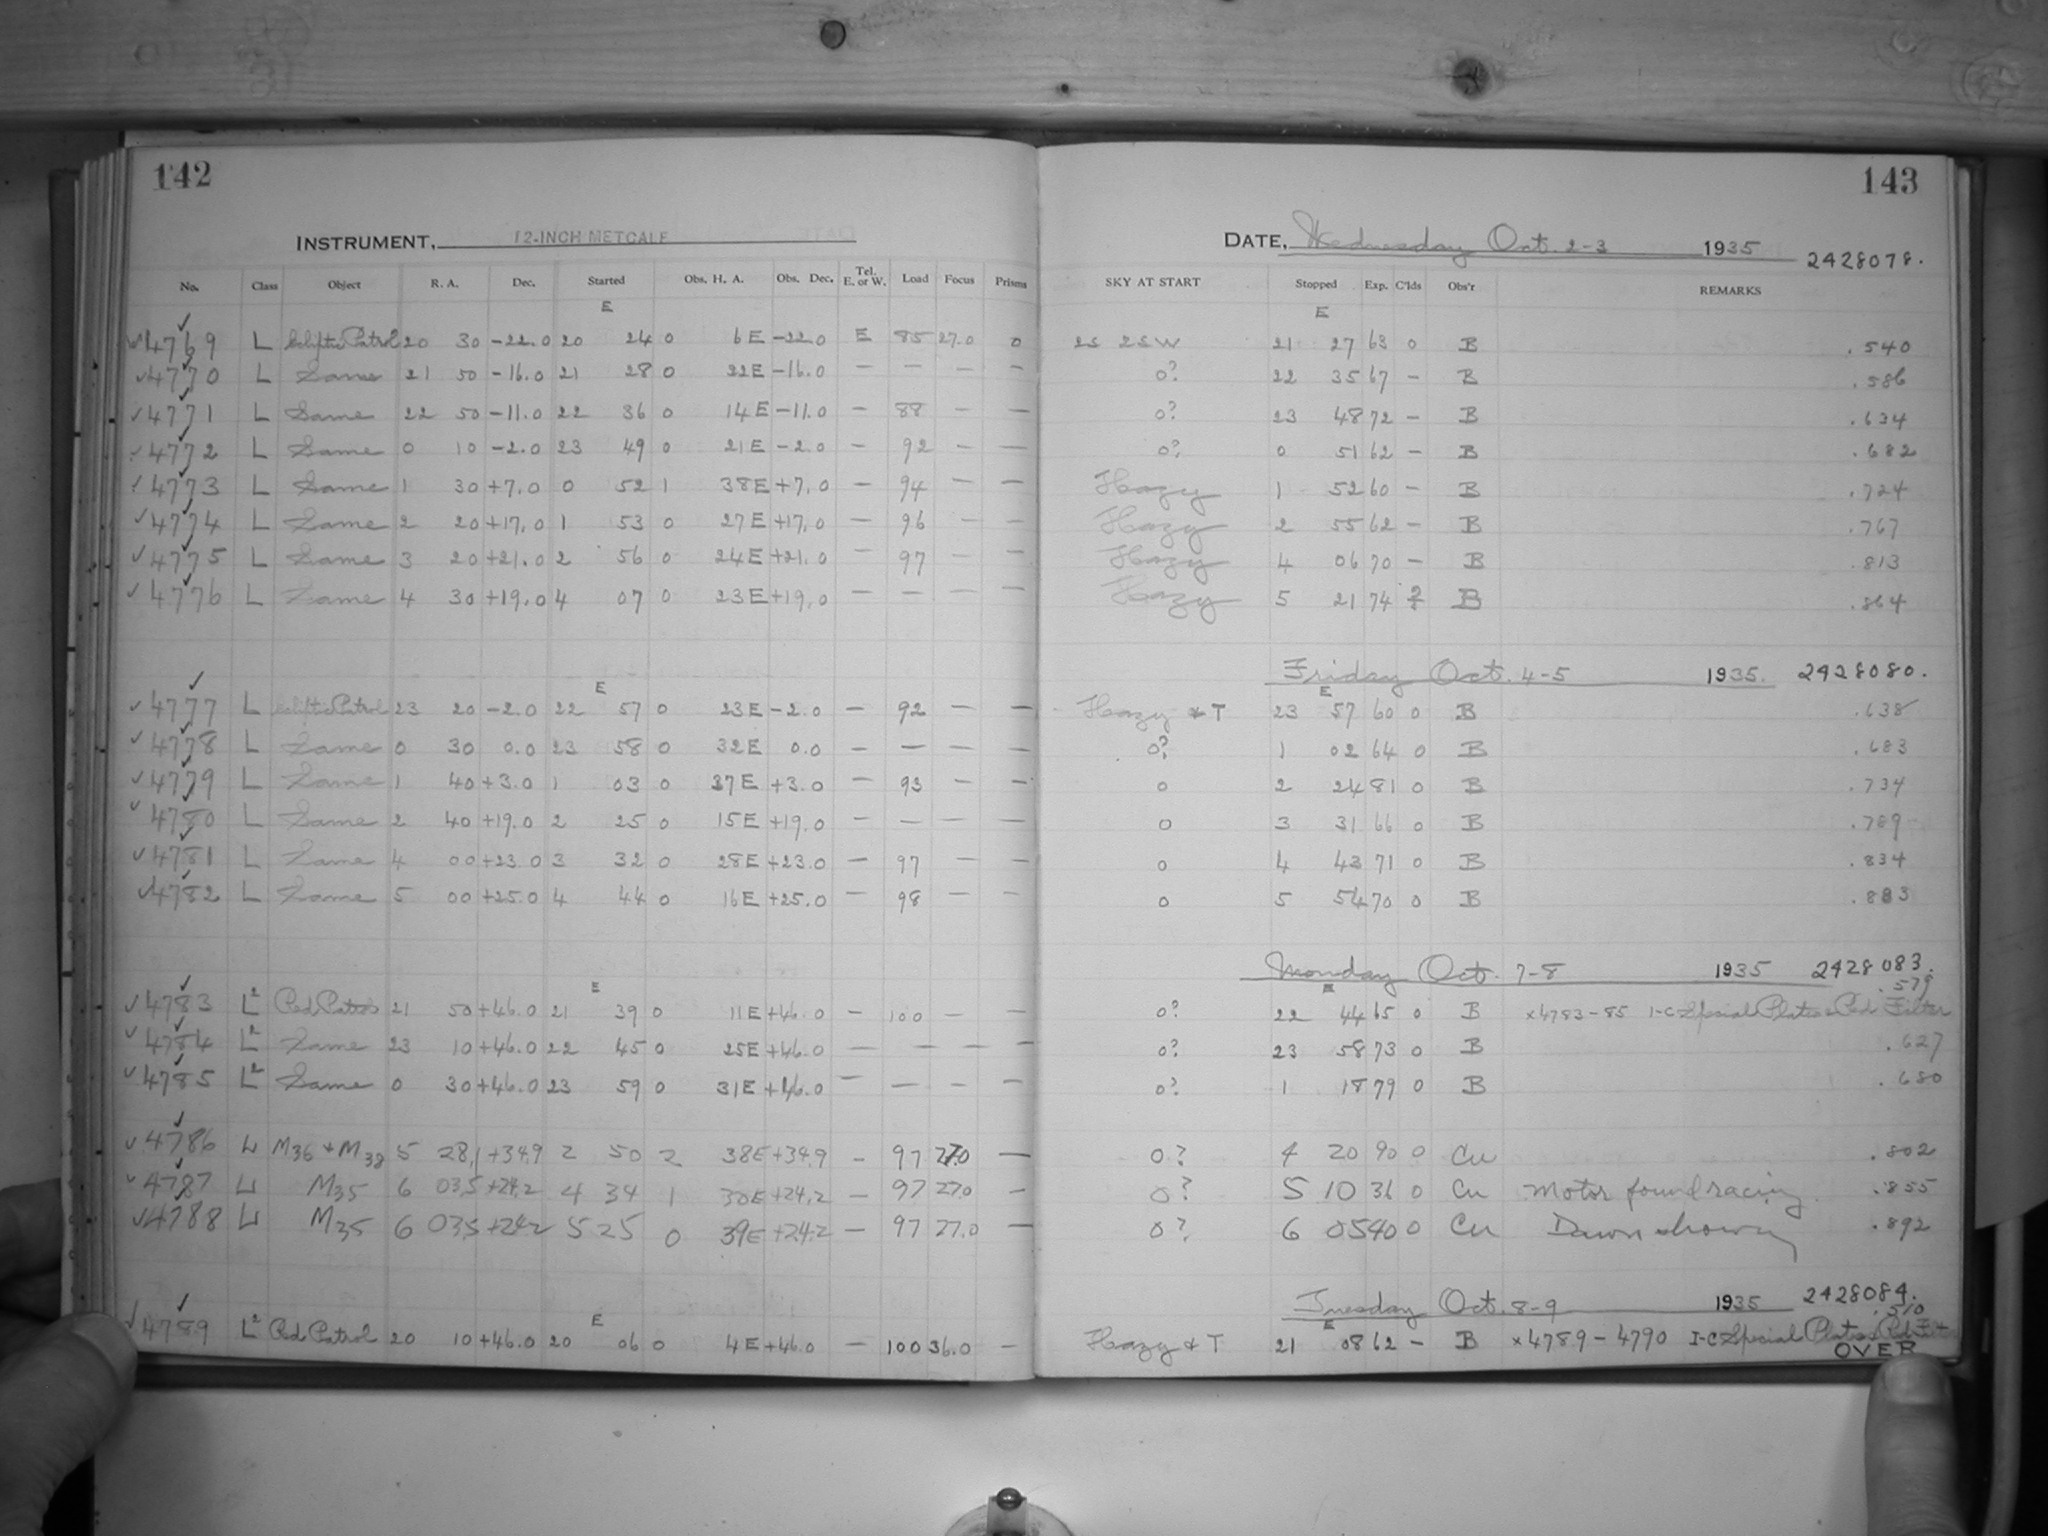 142
143
INSTRUMENT, 12-INCH METCALF
DATE, Wednesday Oct. 2-3 1935 2428078.
No. Class Object R. A. Dec. Started Obs. H. A. Obs. Dec. Tel. E. or W. Load Focus Prisms SKY AT START Stopped Exp. C'lds Obs'r REMARKS
E E
4769 L Ecliptic Patrol 20 30 -22.0 20 24 0 6E -22.0 E 85 27.0 0 2S 2SW 21 27 63 0 B .540
4770 L Same 21 50 -16.0 21 28 0 22E -16.0 — — — — 0? 22 35 67 — B .586
4771 L Same 22 50 -11.0 22 36 0 14E -11.0 — 88 — — 0? 23 48 72 — B .634
4772 L Same 0 10 -2.0 23 49 0 21E -2.0 — 92 — — 0? 0 51 62 — B .682
4773 L Same 1 30 +7.0 0 52 1 38E +7.0 — 94 — — Hazy 1 52 60 — B .724
4774 L Same 2 20 +17.0 1 53 0 27E +17.0 — 96 — — Hazy 2 55 62 — B .767
4775 L Same 3 20 +21.0 2 56 0 24E +21.0 — 97 — — Hazy 4 06 70 — B .813
4776 L Same 4 30 +19.0 4 07 0 23E +19.0 — — — — Hazy 5 21 74 ? B .864
Friday Oct. 4-5 1935. 2428080.
E E
4777 L Ecliptic Patrol 23 20 -2.0 22 57 0 23E -2.0 — 92 — — Hazy + T 23 57 60 0 B .638
4778 L Same 0 30 0.0 23 58 0 32E 0.0 — — — — 0? 1 02 64 0 B .683
4779 L Same 1 40 +3.0 1 03 0 37E +3.0 — 93 — — 0 2 24 81 0 B .734
4780 L Same 2 40 +19.0 2 25 0 15E +19.0 — — — — 0 3 31 66 0 B .789
4781 L Same 4 00 +23.0 3 32 0 28E +23.0 — 97 — — 0 4 43 71 0 B .834
4782 L Same 5 00 +25.0 4 44 0 16E +25.0 — 98 — — 0 5 54 70 0 B .883
Monday Oct. 7-8 1935 2428083.
E E .579
4783 L² Red Patrol 21 50 +46.0 21 39 0 11E +46.0 — 100 — — 0? 22 44 65 0 B x4783-85 I-C Special Plates Red Filter
4784 L² Same 23 10 +46.0 22 45 0 25E +46.0 — — — — 0? 23 58 73 0 B .627
4785 L² Same 0 30 +46.0 23 59 0 31E +46.0 — — — — 0? 1 18 79 0 B .680
4786 L M36 + M38 5 28.1 +34.9 2 50 2 38E +34.9 — 97 27.0 — 0? 4 20 90 0 Cu .802
4787 L M35 6 03.5 +24.2 4 34 1 30E +24.2 — 97 27.0 — 0? 5 10 36 0 Cu Motor found racing .855
4788 L M35 6 03.5 +24.2 5 25 0 39E +24.2 — 97 27.0 — 0? 6 05 40 0 Cu Dawn showing .892
Tuesday Oct. 8-9 1935 2428084.
E E .510
4789 L² Red Patrol 20 10 +46.0 20 06 0 4E +46.0 — 100 36.0 — Hazy + T 21 08 62 — B x4789-4790 I-C Special Plates Red
OVER